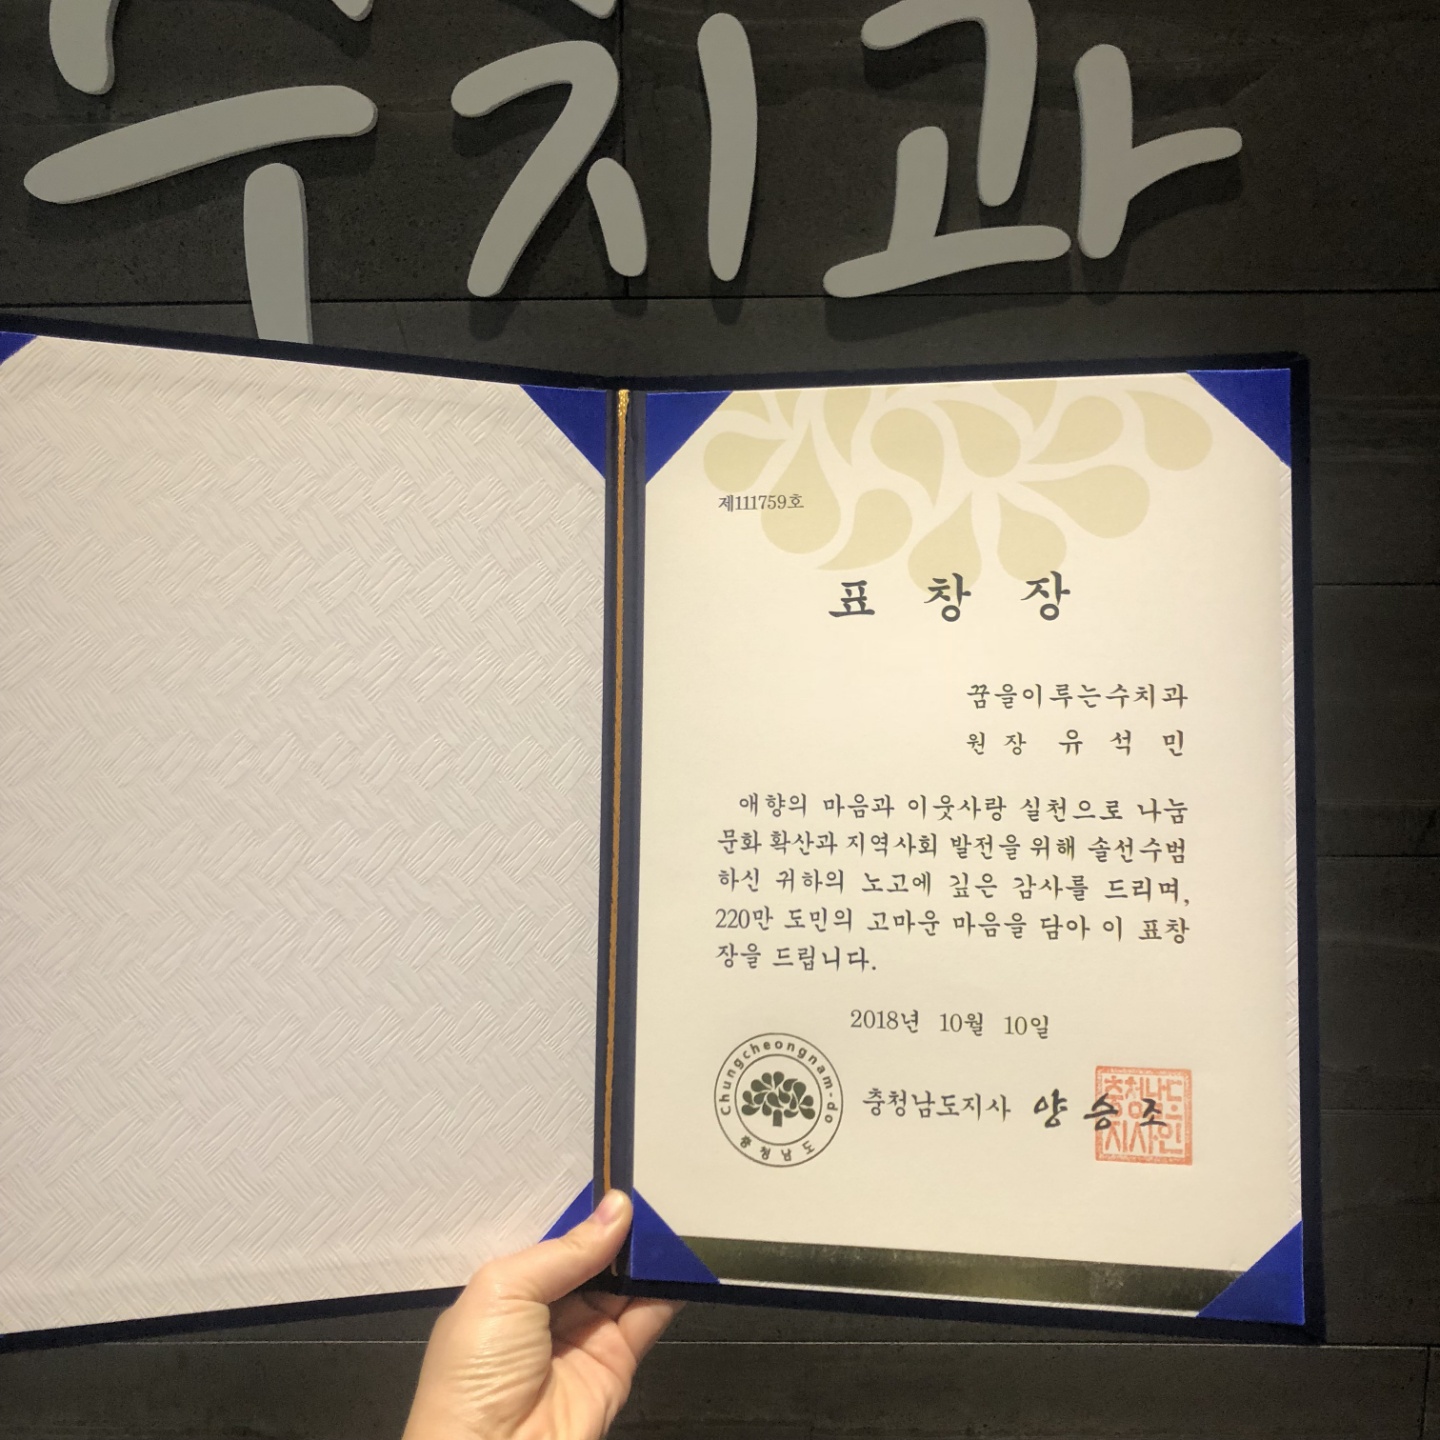 수치과
제111759호
표 창 장
꿈을이루는수치과
원 장 유 석 민
애향의 마음과 이웃사랑 실천으로 나눔
문화 확산과 지역사회 발전을 위해 솔선수범
하신 귀하의 노고에 깊은 감사를 드리며,
220만 도민의 고마운 마음을 담아 이 표창
장을 드립니다.
2018년 10월 10일
Chungcheongnam-do
충청남도
충청남도지사 양승조
충청남도
지사인